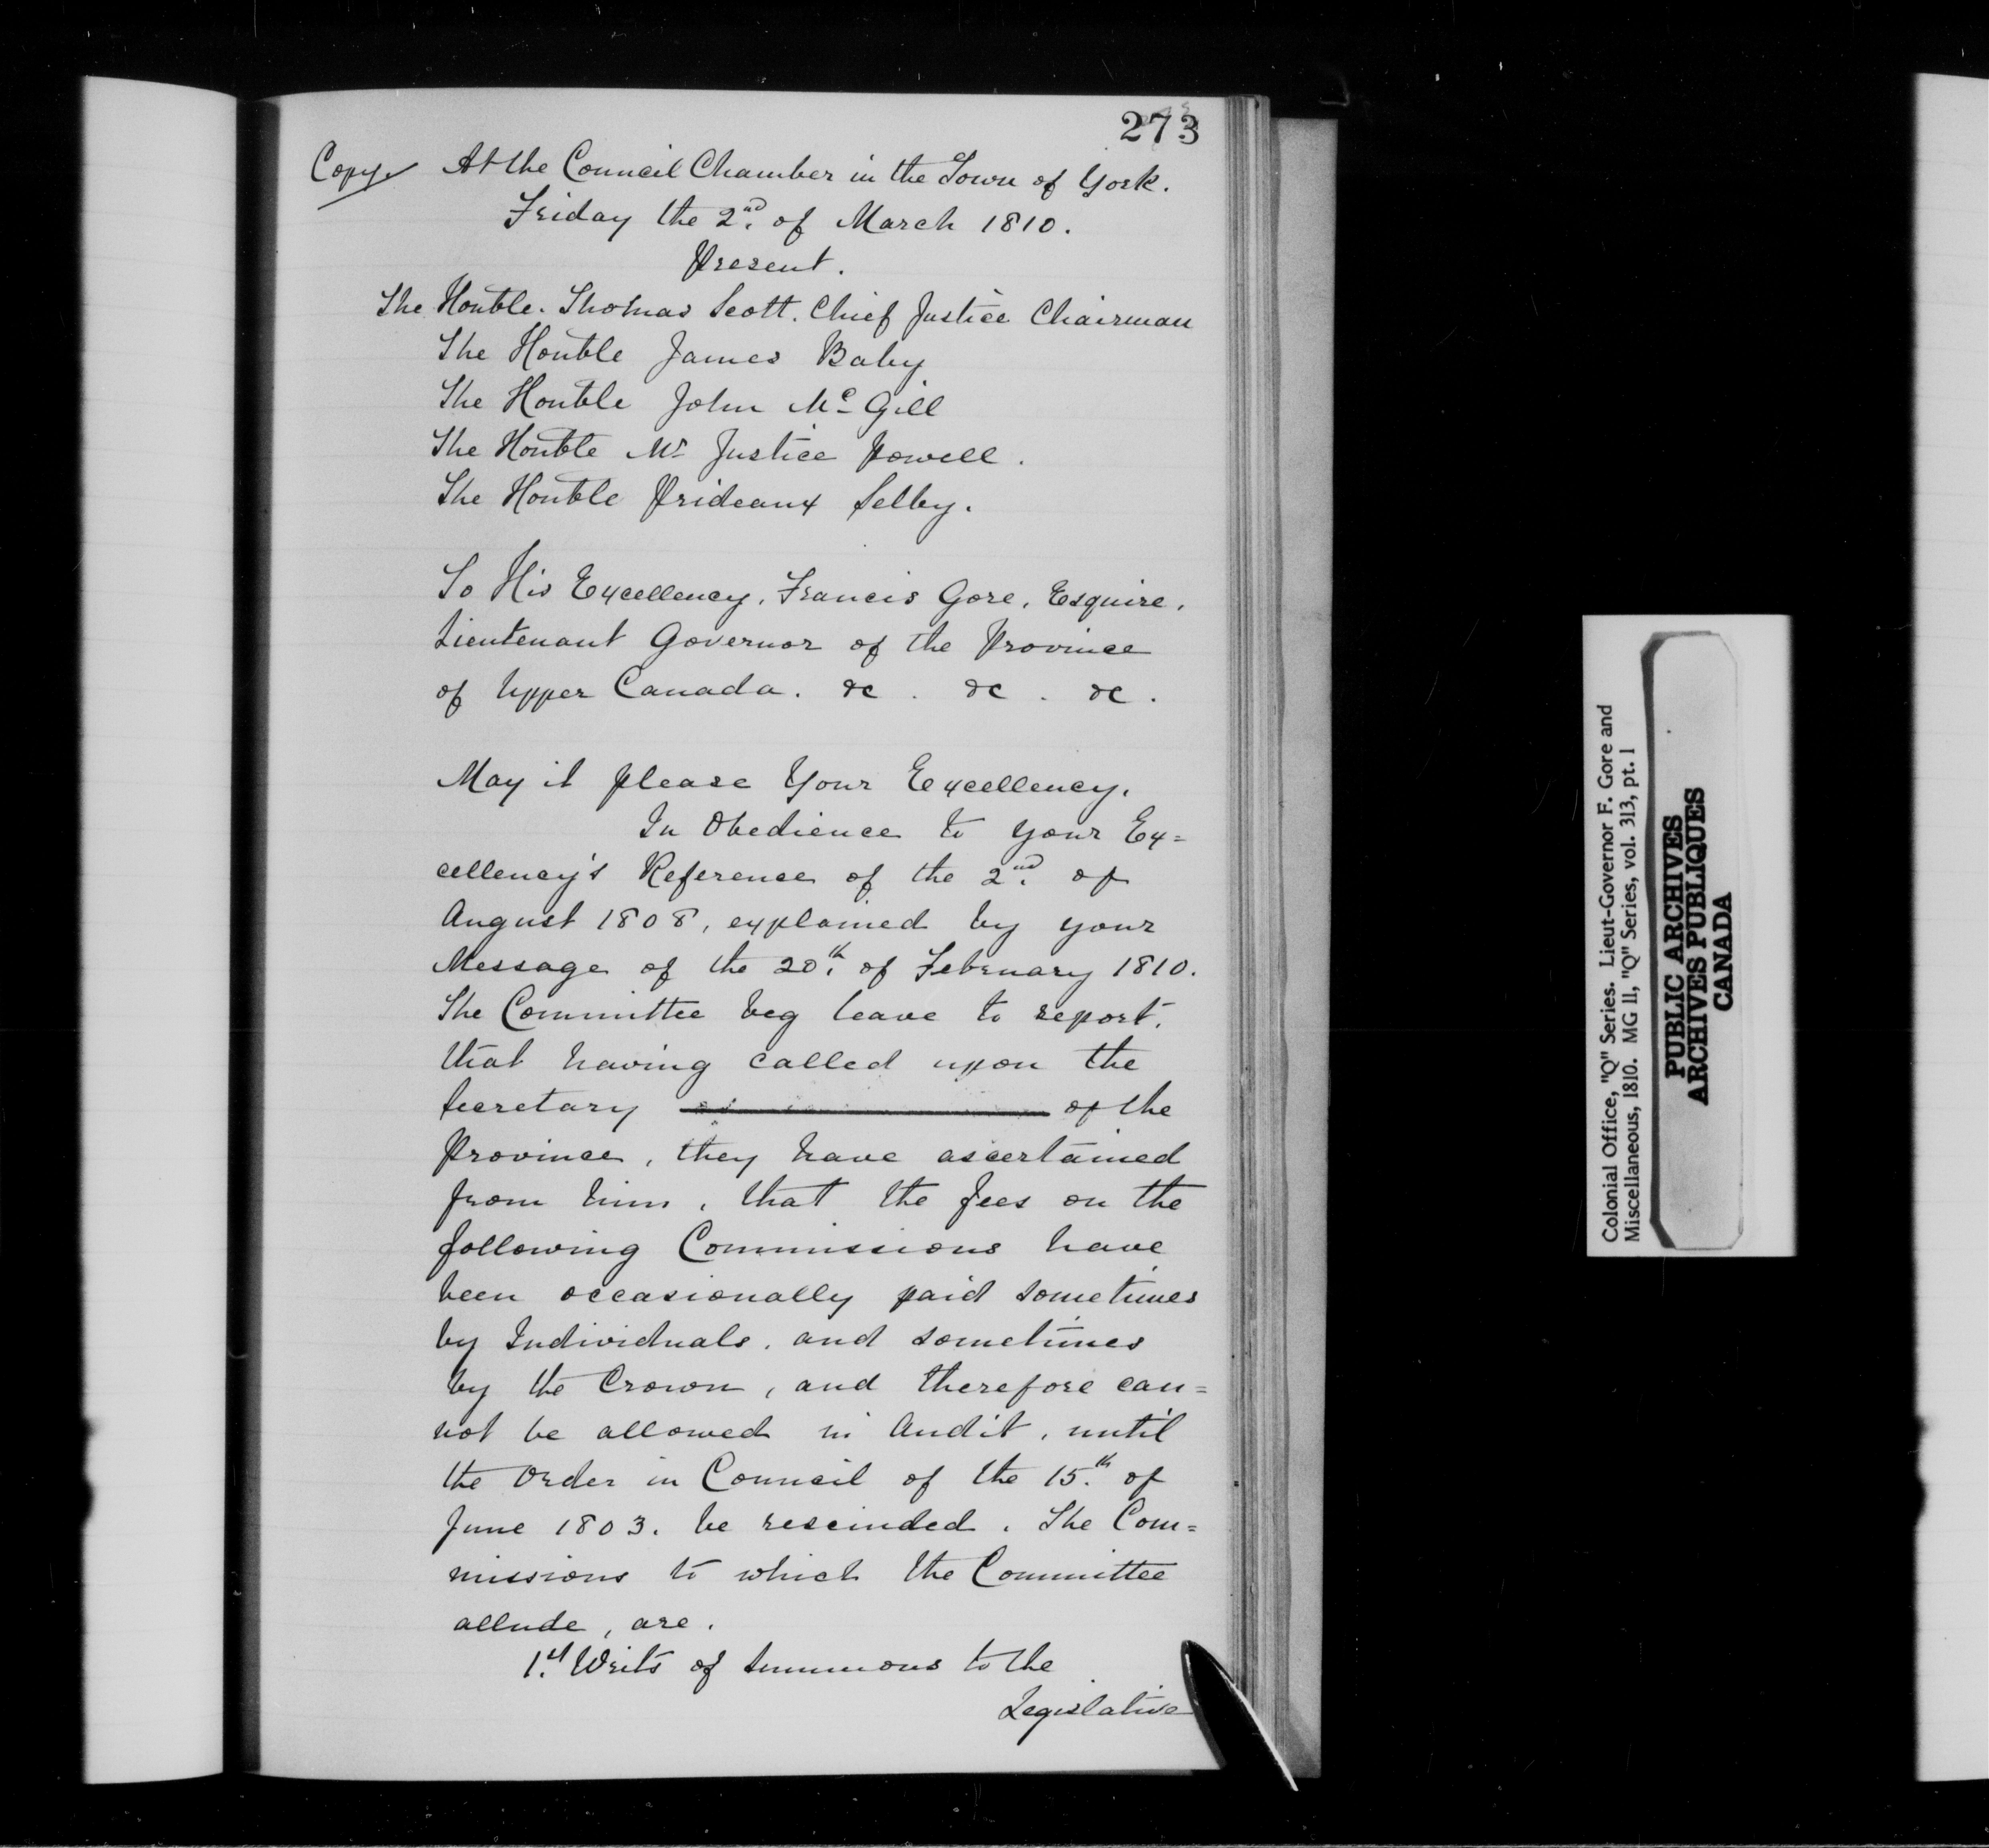 273
Copy. At the Council Chamber in the Town of York.
Friday the 2nd. of March 1810.
Present.
The Honble. Thomas Scott. Chief Justice Chairman
The Honble James Baby
The Honble John Mc Gill
The Honble Mr Justice Powell.
The Honble Prideaux Selby.
To His Excellency, Francis Gore, Esquire,
Lieutenant Governor of the Province
of Upper Canada. &c. &c. &c.
May it please Your Excellency,
In Obedience to your Ex=
cellency's Reference of the 2nd. of
August 1808, explained by your
Message of the 20th. of February 1810.
The Committee beg leave to report,
that having called upon the
Secretary of the
Province, they have ascertained
from him, that the fees on the
following Commissions have
been occasionally paid sometimes
by Individuals, and sometimes
by the Crown, and therefore can=
not be allowed in Audit, until
the Order in Council of the 15th. of
June 1803. be rescinded. The Com=
missions to which the Committee
allude, are.
1st. Writs of Summons to the
Legislative
Colonial Office, "Q" Series. Lieut-Governor F. Gore and
Miscellaneous, 1810. MG 11, "Q" Series, vol. 313, pt. 1
PUBLIC ARCHIVES
ARCHIVES PUBLIQUES
CANADA